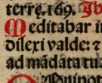 terre. 169. Jb
Meditabar i
dilexi valde: ⁊
ad mādata tu